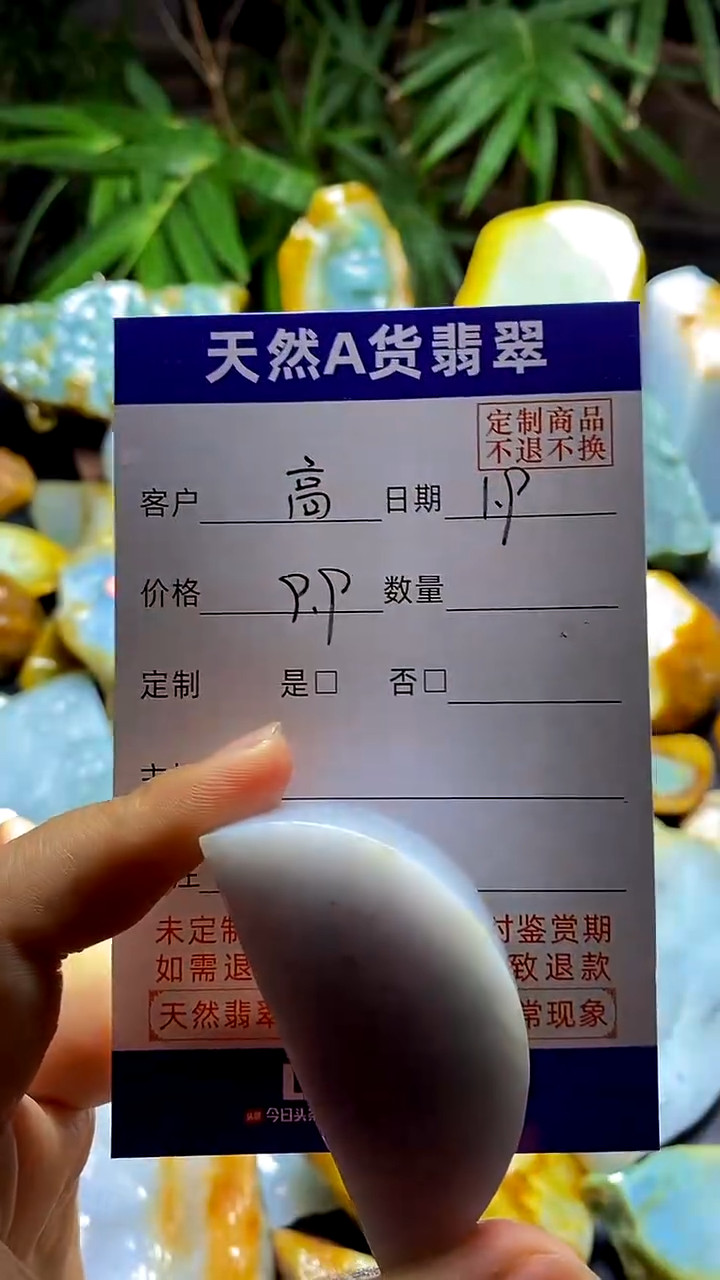 天然A货翡翠
定制商品
不退不换
客户 高 日期
价格 数量
定制 是□ 否□
注
未定制 付鉴赏期
如需退 致退款
天然翡翠 常现象
今日头条